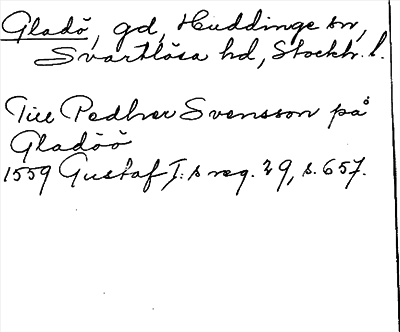 Gladö, gd, Huddinge sn,
Svartlösa hd, Stockh. l.
Till Pedher Svensson på
Gladöö
1559 Gustaf I:s reg. 29, s. 657.